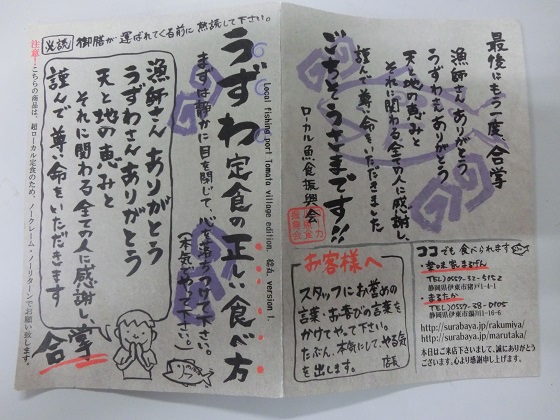 必読 御膳が運ばれてくる前に熟読して下さい。
注意!こちらの商品は、超ローカル定食のため、ノークレーム・ノーリターンでお願い致します。
うずわ定食の正しい食べ方
Local fishing port Tomato village edition. 総点. version 1.
まずは静かに目を閉じて、心を落ちつけて下さい。
(本気でやって下さい。)
漁師さんありがとう
うずわさんありがとう
天と地の恵みと
それに関わる全ての人に感謝し、
謹んで尊い命をいただきます
合掌
最後にもう一度、合掌
漁師さんありがとう
うずわもありがとう
天と地の恵みと
それに関わる全ての人に感謝、
謹んで尊い命をいただきました
ごちそうさまです!!
ローカル魚食振興会
お客様へ
スタッフにお誉めの
言葉・お喜びの言葉を
かけてやって下さい。
たぶん、本気にして、やる気
を出します。
店長
ココでも食べられます
TEL)0557-32-5152
静岡県伊東市猪戸1-4-1
まるたか
TEL)0557-38-0105
静岡県伊東市湯川1-16-6
http://surabaya.jp/rakumiya/
http://surabaya.jp/marutaka/
本日はご来店下さいまして、誠にありがとう
ございます。心より感謝申し上げます。